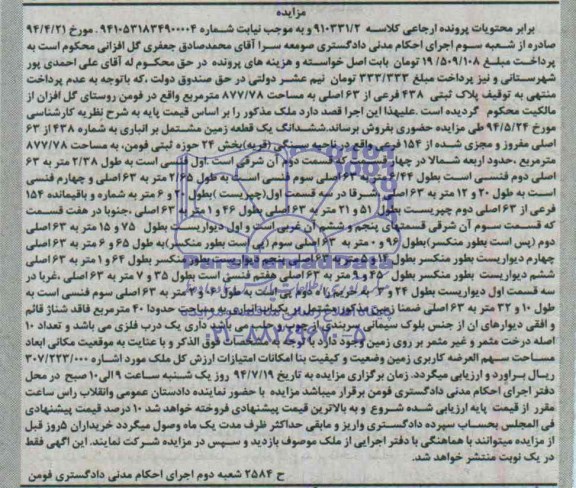 مزایده
برابر محتویات پرونده ارجاعی کلاسه ۹۱۰۳۳۱/۲ و به موجب نیابت شماره ۹۴۱۰۵۳۱۸۳۴۹۰۰۰۰۴ . مورخ ۹۴/۴/۲۱
صادره از شعبه سوم اجرای احکام مدنی دادگستری صومعه سرا آقای محمدصادق جعفری گل افزانی محکوم است به
پرداخت مبلغ ۱۹/۵۰۹/۱۰۸ تومان بابت اصل خواسته و هزینه های پرونده در حق محکوم له آقای علی احمدی پور
شهرستانی و نیز پرداخت مبلغ ۳۳۳/۳۳۳ تومان نیم عشر دولتی در حق صندوق دولت ،که باتوجه به عدم پرداخت
منتهی به توقیف پلاک ثبتی ۴۳۸ فرعی از ۶۳ اصلی به مساحت ۸۷۷/۷۸ مترمربع واقع در فومن روستای گل افزان از
مالکیت محکوم گردیده است .علیهذا این اجرا قصد دارد ملک مذکور را بر اساس قیمت پایه به شرح نظریه کارشناسی
مورخ ۹۴/۵/۲۴ طی مزایده حضوری بفروش برساند.ششدانگ یک قطعه زمین مشتمل بر انباری به شماره ۴۳۸ از ۶۳
اصلی مفروز و مجزی شده از ۱۵۴ فرعی واقع در ناحیه سنگی (قریه)بخش ۲۴ حوزه ثبتی فومن، به مساحت ۸۷۷/۷۸
مترمربع ،حدود اربعه شمالا در چهار قسمت که قسمت دوم آن شرقی است .اول فنسی است به طول ۲/۳۸ متر به ۶۳
اصلی دوم فنسی است بطول ۶/۴۴ متر به ۶۳ اصلی سوم فنسی است به طول ۲/۶۵ متر به ۶۳ اصلی و چهارم فنسی
است به طول ۲۰ و ۱۲ متر به ۶۳ اصلی شرقا در سه قسمت اول(چپریست )بطول ۲۰ و ۶ متر به شماره و باقیمانده ۱۵۴
فرعی از ۶۳ اصلی دوم چپریست بطول ۵۱ و ۲۱ متر به ۶۳ اصلی بطول ۴۶ و ۱ متر به ۶۳ اصلی ،جنوبا در هفت قسمت
که قسمت سوم آن شرقی قسمتهای پنجم و ششم آن غربی است و اول دیواریست بطول ۷۵ و ۱۵ متر به ۶۳ اصلی
دوم (پس است بطور منکسر)بطول ۹۶ و ۰ متر به ۶۳ اصلی سوم (پی است بطور منکسر)به طول ۶۵ و ۶ متر به ۶۳ اصلی
چهارم دیواریست بطور منکسر بطول ۱۴ و ۵ متر به ۶۳ اصلی پنجم دیواریست بطور منکسر بطول ۶۴ و ۱ متر به ۶۳ اصلی
ششم دیواریست بطور منکسر بطول ۴۵ و ۹ متر به ۶۳ اصلی هفتم فنسی است بطول ۳۵ و ۷ متر به ۶۳ اصلی ،غربا در
سه قسمت اول دیواریست بطول ۲۴ و ۳ به حریم راه دوم پی است به طول ۶۰ و ۳ متر به ۶۳ اصلی سوم فنسی است به
طول ۱۰ و ۳۲ متر به ۶۳ اصلی ضمنا زمین مذکور مشتمل بر یکباب انباری به مساحت حدودا ۴۰ مترمربع فاقد شناژ قائم
و افقی دیوارهای آن از جنس بلوک سیمانی سربندی از چوب و حلب می باشد داری یک درب فلزی می باشد و تعداد ۱۰
اصله درخت مثمر و غیر مثمر بر روی زمین وجود دارد با توجه به مشخصات فوق الذکر و با عنایت به موقعیت مکانی ابعاد
مساحت سهم العرضه کاربری زمین وضعیت و کیفیت بنا امکانات امتیازات ارزش کل ملک مورد اشاره ۳۰۷/۲۲۳/۰۰۰
ریال براورد و ارزیابی میگردد. زمان برگزاری مزایده به تاریخ ۹۴/۷/۱۹ روز یک شنبه ساعت ۹ الی ۱۰ صبح در محل
دفتر اجرای احکام مدنی دادگستری فومن برقرار میباشد مزایده با حضور نماینده دادستان عمومی وانقلاب راس ساعت
مقرر از قیمت پایه ارزیابی شده شروع و به بالاترین قیمت پیشنهادی فروخته خواهد شد ۱۰ درصد قیمت پیشنهادی
فی المجلس بحساب سپرده دادگستری واریز و مابقی حداکثر ظرف مدت یک ماه وصول میگردد خریداران ۵ روز قبل
از مزایده میتوانند با هماهنگی با دفتر اجرایی از ملک موصوف بازدید و سپس در مزایده شرکت نمایند. این آگهی فقط
در یک نوبت منتشر خواهد شد.
ح ۲۵۸۴ شعبه دوم اجرای احکام مدنی دادگستری فومن
ParsNamadData